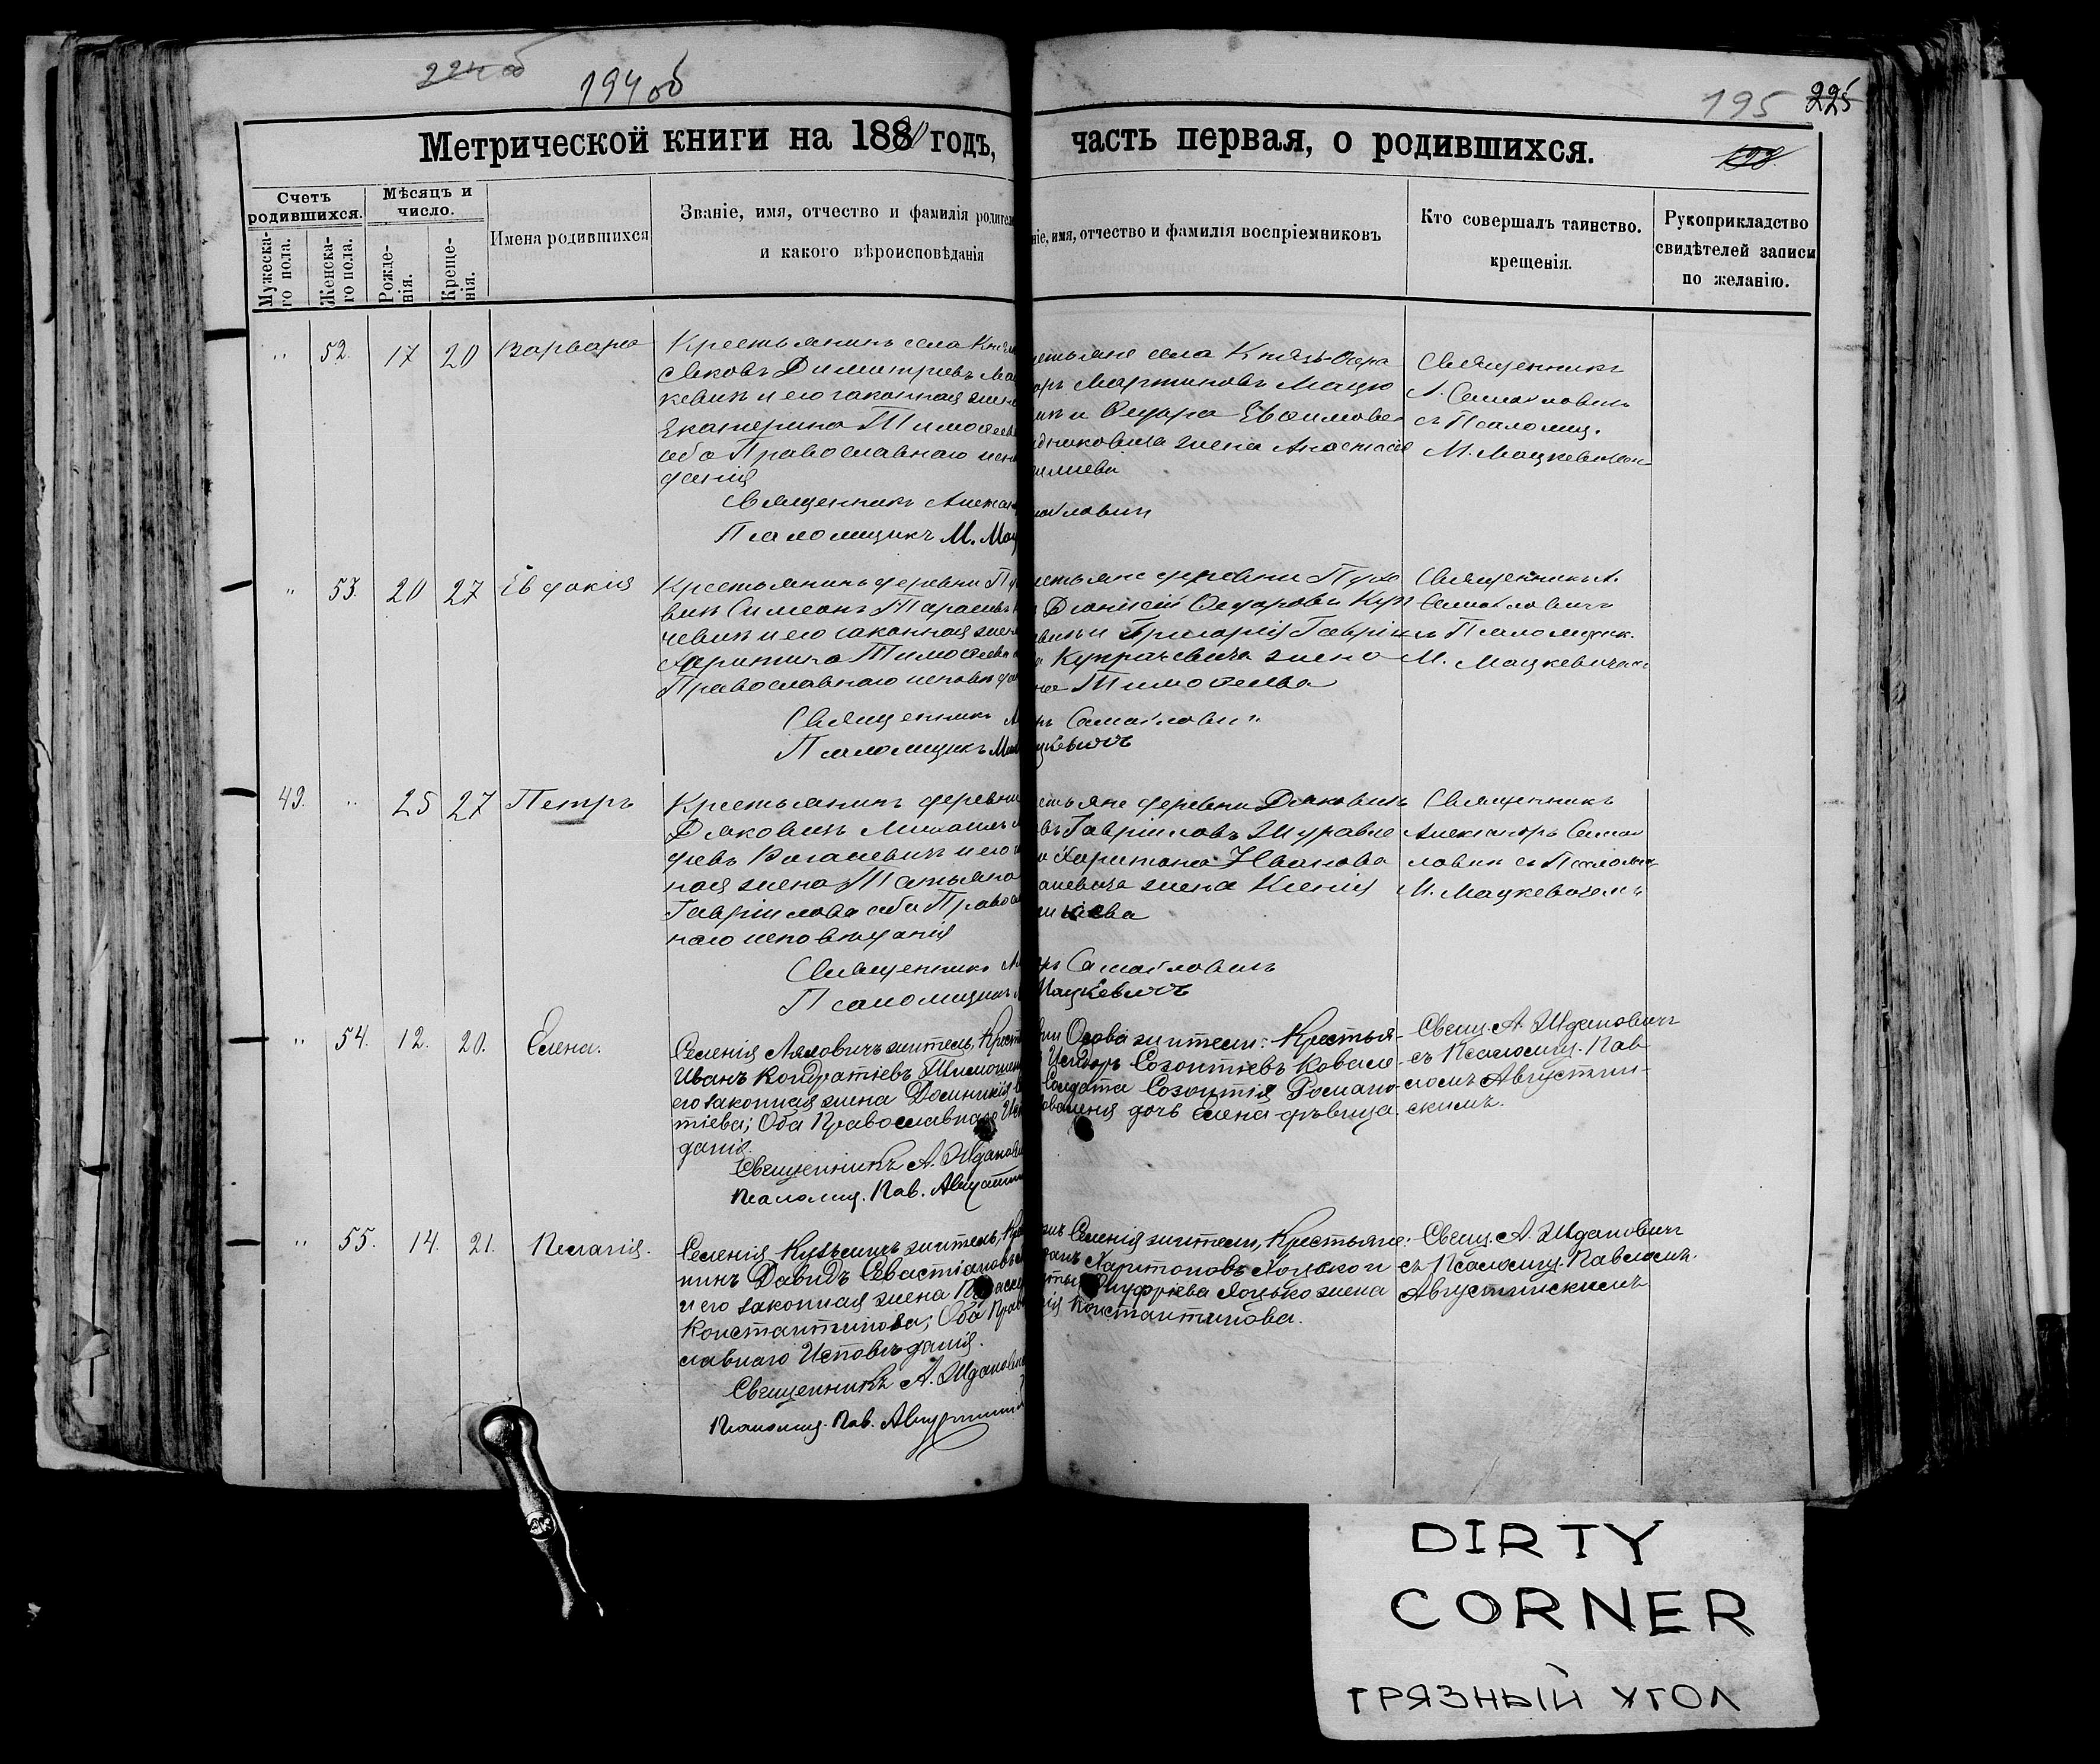 224 об
194 об
195 225
Метрической книги на 188 годъ, часть первая, о родившихся.
Счетъ родившихся.
Мѣсяцъ и число.
Мужеска-го пола.
Женска-го пола.
Рожде-нія.
Креще-нія.
Имена родившихся
Званіе, имя, отчество и фамилія родител
и какого вѣроисповѣданія
ніе, имя, отчество и фамилія воспріемниковъ
Кто совершалъ таинство.
крещенія.
Рукоприкладство
свидѣтелей записи
по желанію.
" 52. 17 20 Варвара
Крестьянинъ села Княз
Яковъ Димитріевъ Мац
кевичъ и его законная жена
Екатерина Тимоѳеев
оба Православнаго испо
данія
Священникъ Алексан
Псаломщикъ М. Мац
естьяне села Князь-Озера
Мартиновъ Мацке
и Ѳедора Евѳимова
жена Анастасія
Самойловичъ
Священникъ
А. Самойловичъ
съ Псаломщ.
М. Мацкевичем
" 53. 20 27 Евдокія
Крестьянинъ деревни Пу
вичъ Симеонъ Тарасіевъ К
чевичъ и его законная жена
Харитина Тимоѳеева
Православнаго исповѣда
Священникъ
Псаломщикъ
естьяне деревни Пухо
Діонисій Ѳедоровъ Куп
и Григорія Гавріи
Купрачевича жена
Тимоѳеева
Самойловичъ
цкевичъ
Священникъ А.
Самойловичъ
съ Псаломщик.
М. Мацкевичем
49. " 25 27 Петръ
Крестьянинъ деревни
Дяковичъ Михаилъ
Рогалевичъ и его
ная жена Татьяна
Гавріилова оба Правосл
наго исповѣданія
Священникъ
Псаломщикъ
естьяне деревни Дяковичъ
Гавріиловъ Журавле
и Харитона Иванова
жена Ксенія
Самойловичъ
Мацкевичъ
Священникъ
Александръ Самой
ловичъ съ Псаломщ
М. Мацкевичемъ
" 54. 12. 20. Елена.
Селенія Ляховичъ житель, Крест
Иванъ Кондратіевъ Тимошен
его законная жена Домникія
тіева; Оба Православнаго Исп
данія.
Священникъ А. Жданови
Псаломщ. Пав. Августин
Осова жители: Крестья-
Исидоръ Созонтіевъ Ковале
Солдата Созонтія Романо-
дочь Елена дѣвица.
Свящ. А. Ждановичъ
съ Псаломщ. Пав-
ломъ Августин-
скимъ.
" 55. 14. 21. Пелагія.
Селенія Кузьмичъ житель, Кре
нинъ Давидъ Севастіановъ
и его законная жена Параске
Константинова; Оба Право
славнаго Исповѣданія.
Священникъ А. Жданови
Псаломщ. Пав. Августин
Селенія жители, Крестьяне:
Харитоновъ Лоцько и
Онуфріева Лоцько жена
Константинова.
Свящ. А. Ждановичъ
съ Псаломщ. Павломъ
Августинскимъ
DIRTY
CORNER
ГРЯЗНЫЙ УГОЛ